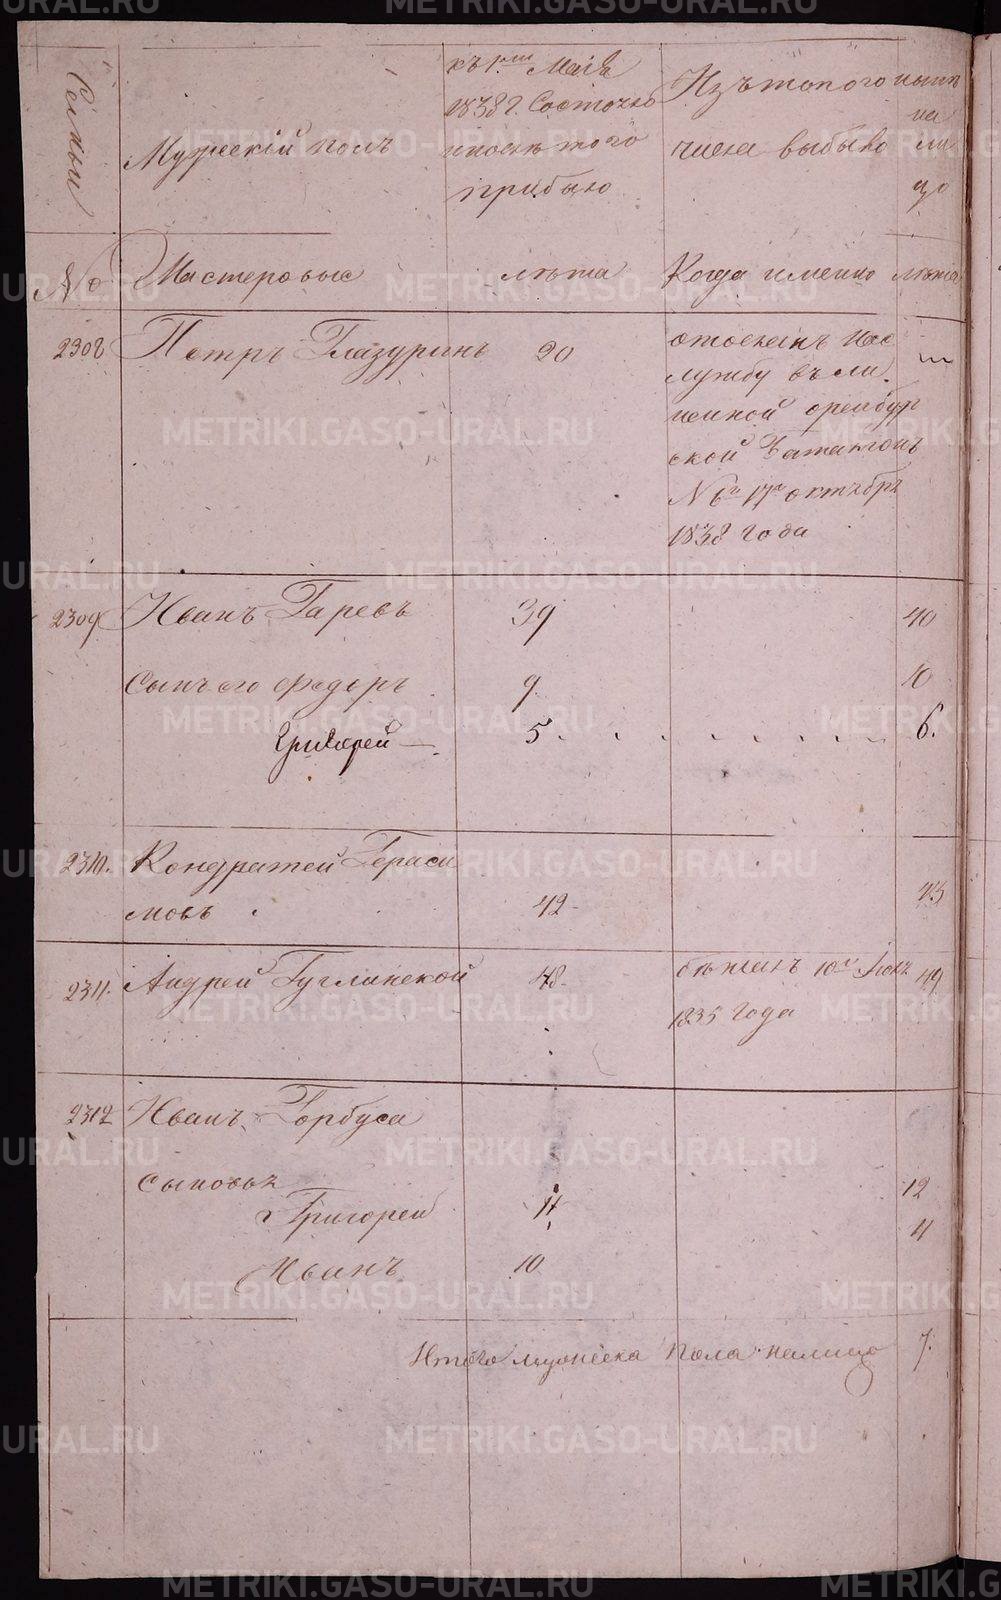 Семьи
Мужескій полъ
къ 1му Маія
1838 г. Состояло
и после того
прибыло
Изъ того
числа выбыло
ныне
на
ли
цо
№
Мастеровые
лѣта
Когда имянно
лѣта
2308
Петръ Глазуринъ
20
отосланъ на
службу въ ли
нейной оренбур
ской Баталіонъ
№ 6й 17 октебря
1838 года
2309
Иванъ Гаревъ
39
40
Сынъ его Федоръ
9.
10
Григорей
5
6.
2310.
Кондратей Гераси
мовъ
42
43
2311.
Андрей Гуглинской
48
бежалъ 10
1835 года
49
2312
Иванъ Горбуса
Сыновья
Григорей
11
12
Иванъ
10
11
Итого мужеска пола налицо
7.
METRIKI.GASO-URAL.RU